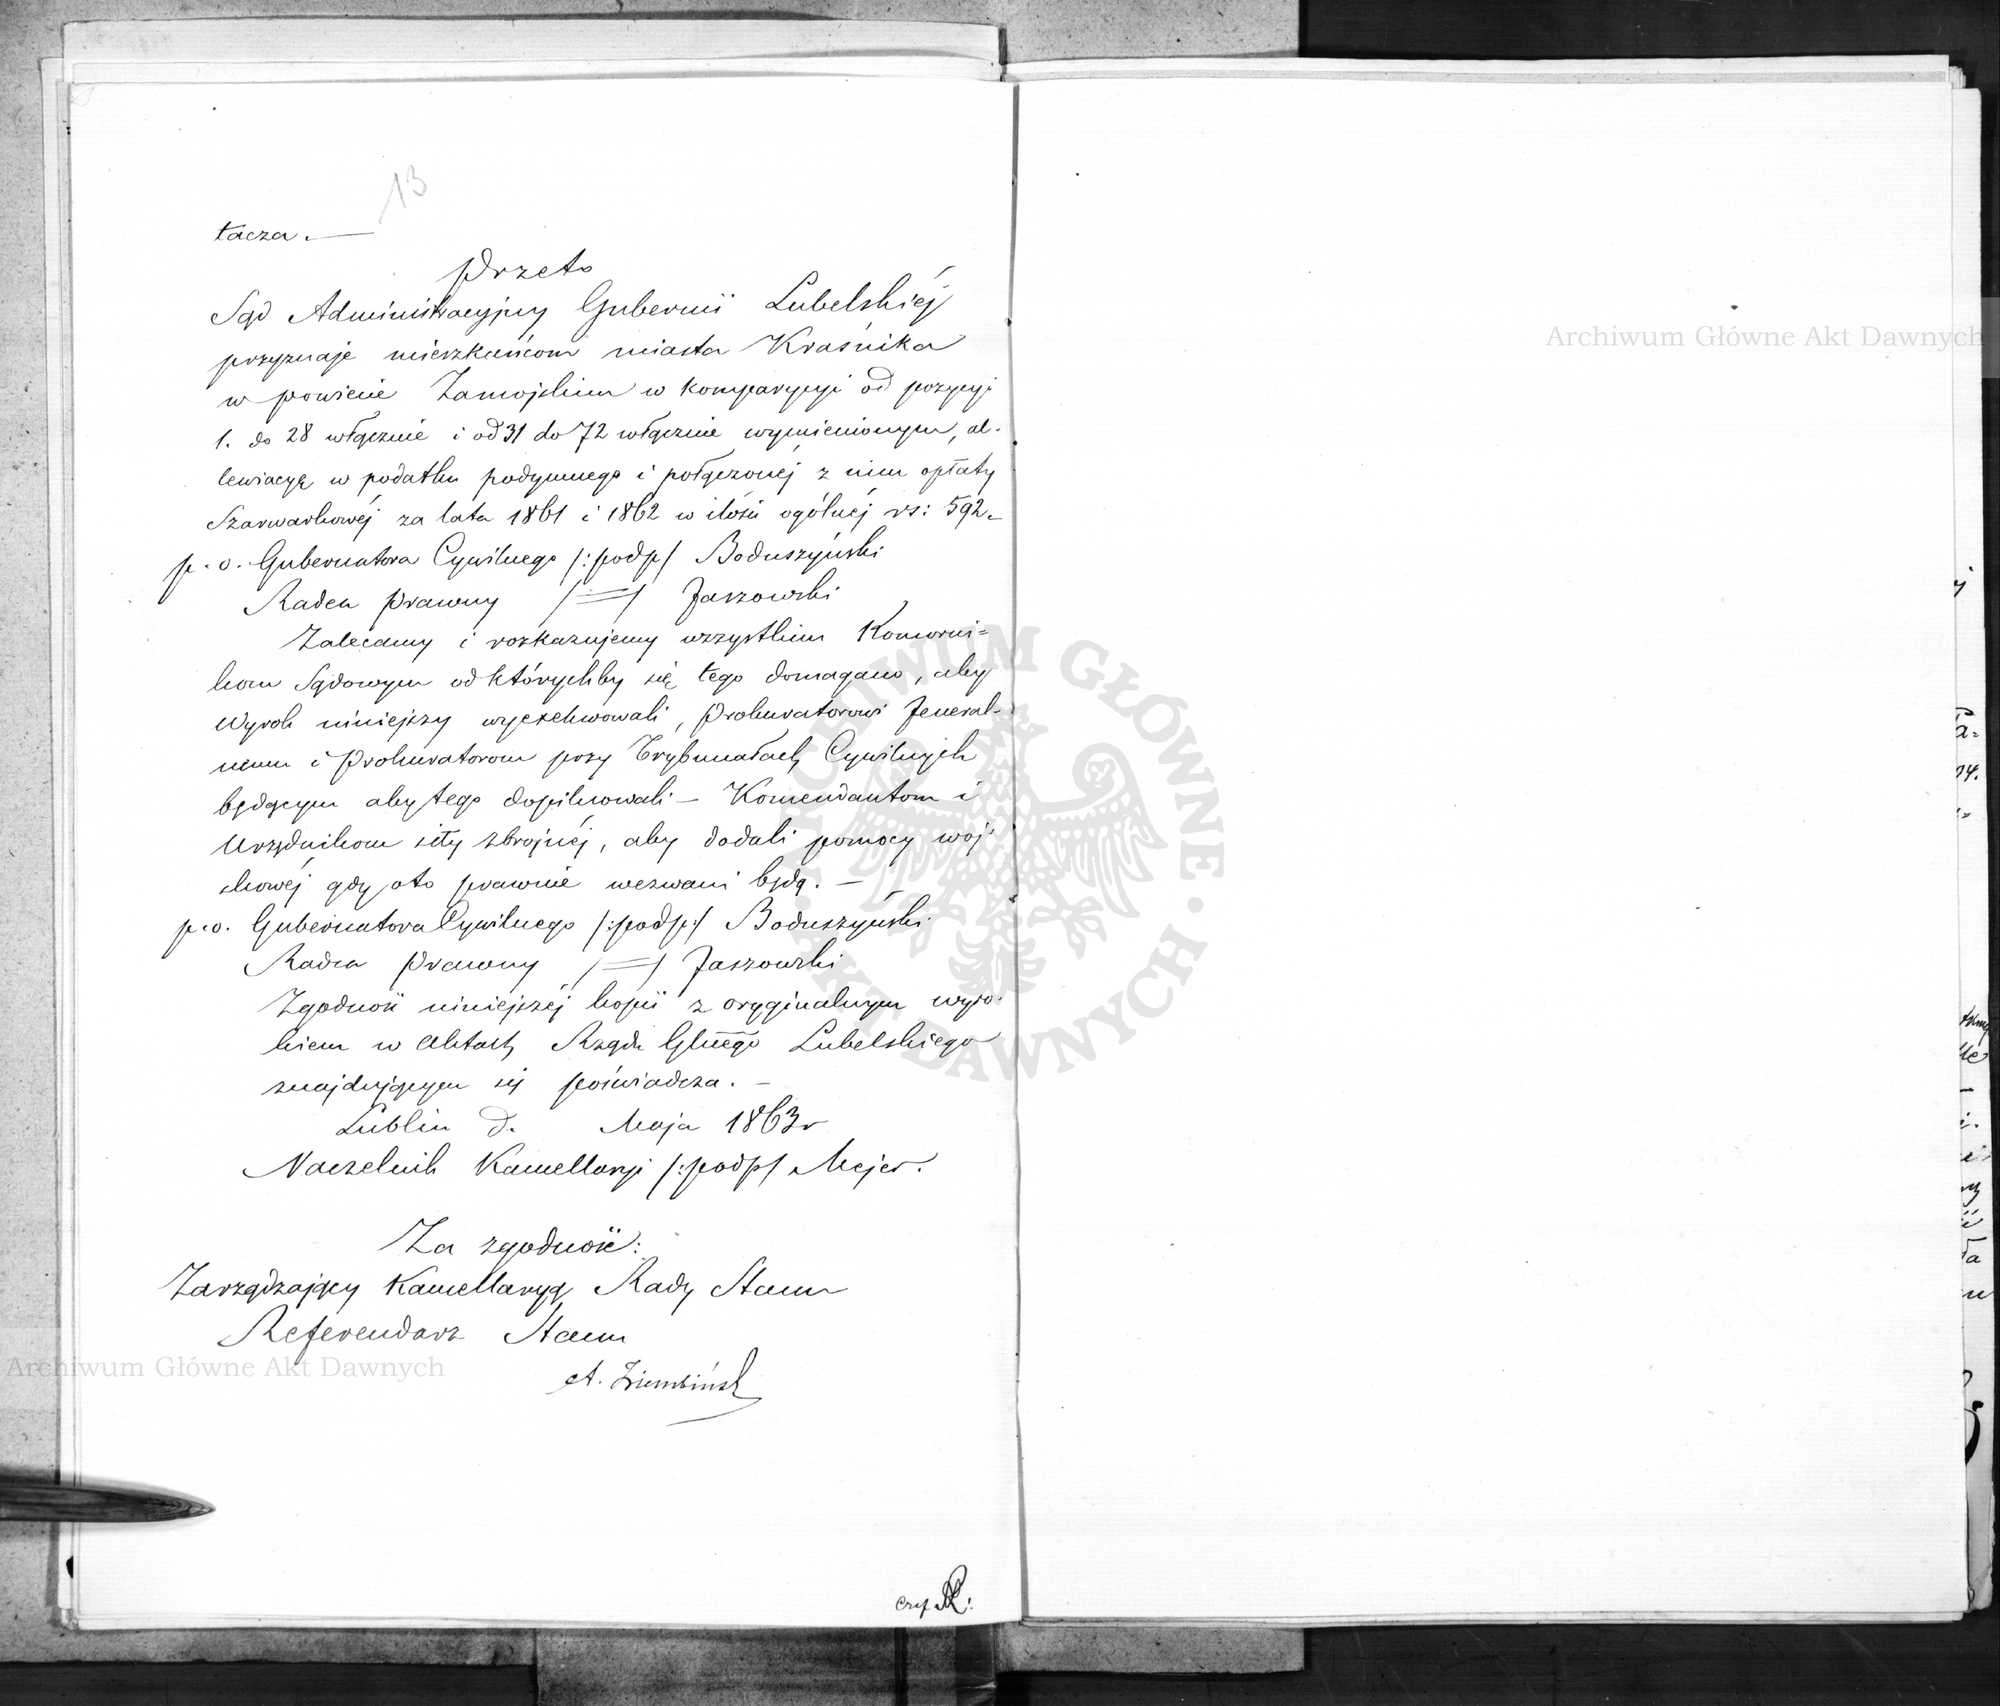 13
tacza. —
Przeto
Sąd Administracyjny Gubernii Lubelskiéj
przyznaje mieszkańcom miasta Kraśnika
w powiecie Zamojskim w komparycyi od pozycyi
1. do 28 włącznie i od 31 do 72 włącznie wymienionym, al-
lewiacyą w podatku podymnego i połączonéj z nim opłaty
Szarwarkowéj za lata 1861 i 1862 w ilości ogólnéj rs: 592.
p. o. Gubernatora Cywilnego /:podp/ Boduszyński
Radca Prawny /=/ Jaszowski
Zalecamy i rozkazujemy wszystkim Komorni=
kom Sądowym od którychby się tego domagano, aby
Wyrok niniejszy wyexekwowali, Prokuratorowi Jeneral-
nemu i Prokuratorom przy Trybunałach Cywilnych
będącym aby tego dopilnowali – Komendantom i
Urzędnikom siły zbrojnéj, aby dodali pomocy woj-
skowéj gdy oto prawnie wezwani będą. —
p. o. Gubernatora Cywilnego /:podp:/ Boduszyński
Radca Prawny /=/ Jaszowski
Zgodność niniejszéj kopii z oryginalnym wyro-
kiem w Aktach Rządu Glnego Lubelskiego
znajdującym się poświadcza. –
Lublin d. Maja 1863 r
Naczelnik Kancellaryi /:podp/ Mejer.
Za zgodność:
Zarządzający Kancellaryą Rady Stanu
Referendarz Stanu
A. Ziembiński
Archiwum Główne Akt Dawnych
Archiwum Główne Akt Dawnych
ARCHIWUM GŁÓWNE AKT DAWNYCH